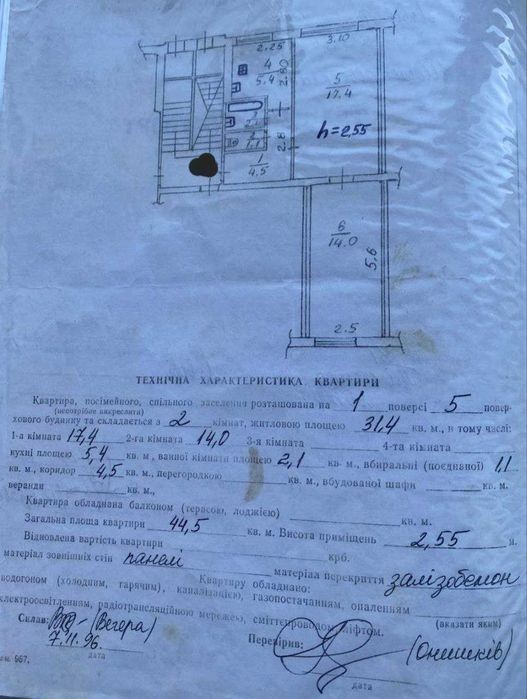 2.25
3.10
4
5.4
2.80
5
17.4
h=2,55
2.8
1.1
1
4.5
6
14.0
5,6
2.5
ТЕХНІЧНА ХАРАКТЕРИСТИКА КВАРТИРИ
Квартира, посімейного, спільного заселення розташована на 1 поверсі 5 повер-
(непотрібне викреслити)
хового будинку та складається з 2 кімнат, житловою площею 31,4 кв. м., в тому числі:
1-а кімната 17,4 2-га кімната 14,0 3-я кімната 4-та кімната
кухні площею 5,4 кв. м., ванної кімнати площею 2,1 кв. м., вбиральні (поєднаної) 1,1
кв. м., коридор 4,5 кв. м., перегородкою кв. м., вбудованої шафи кв. м.
веранди кв. м.,
Квартира обладнана балконом (терасою, лоджією) кв. м.
Загальна площа квартири 44,5 кв. м. Висота приміщень 2,55 м.
Відновлена вартість квартири крб.
матеріал зовнішніх стін панелі матеріал перекриття залізобетон
Квартиру обладнано:
водогоном (холодним, гарячим), каналізацією, газопостачанням, опаленням
(вказати яким)
електроосвітленням, радіотрансляційною мережею, сміттєпроводом, ліфтом.
Склав: (Вегера) Перевірив: (Онишків)
7.11.96.
дата дата
667.